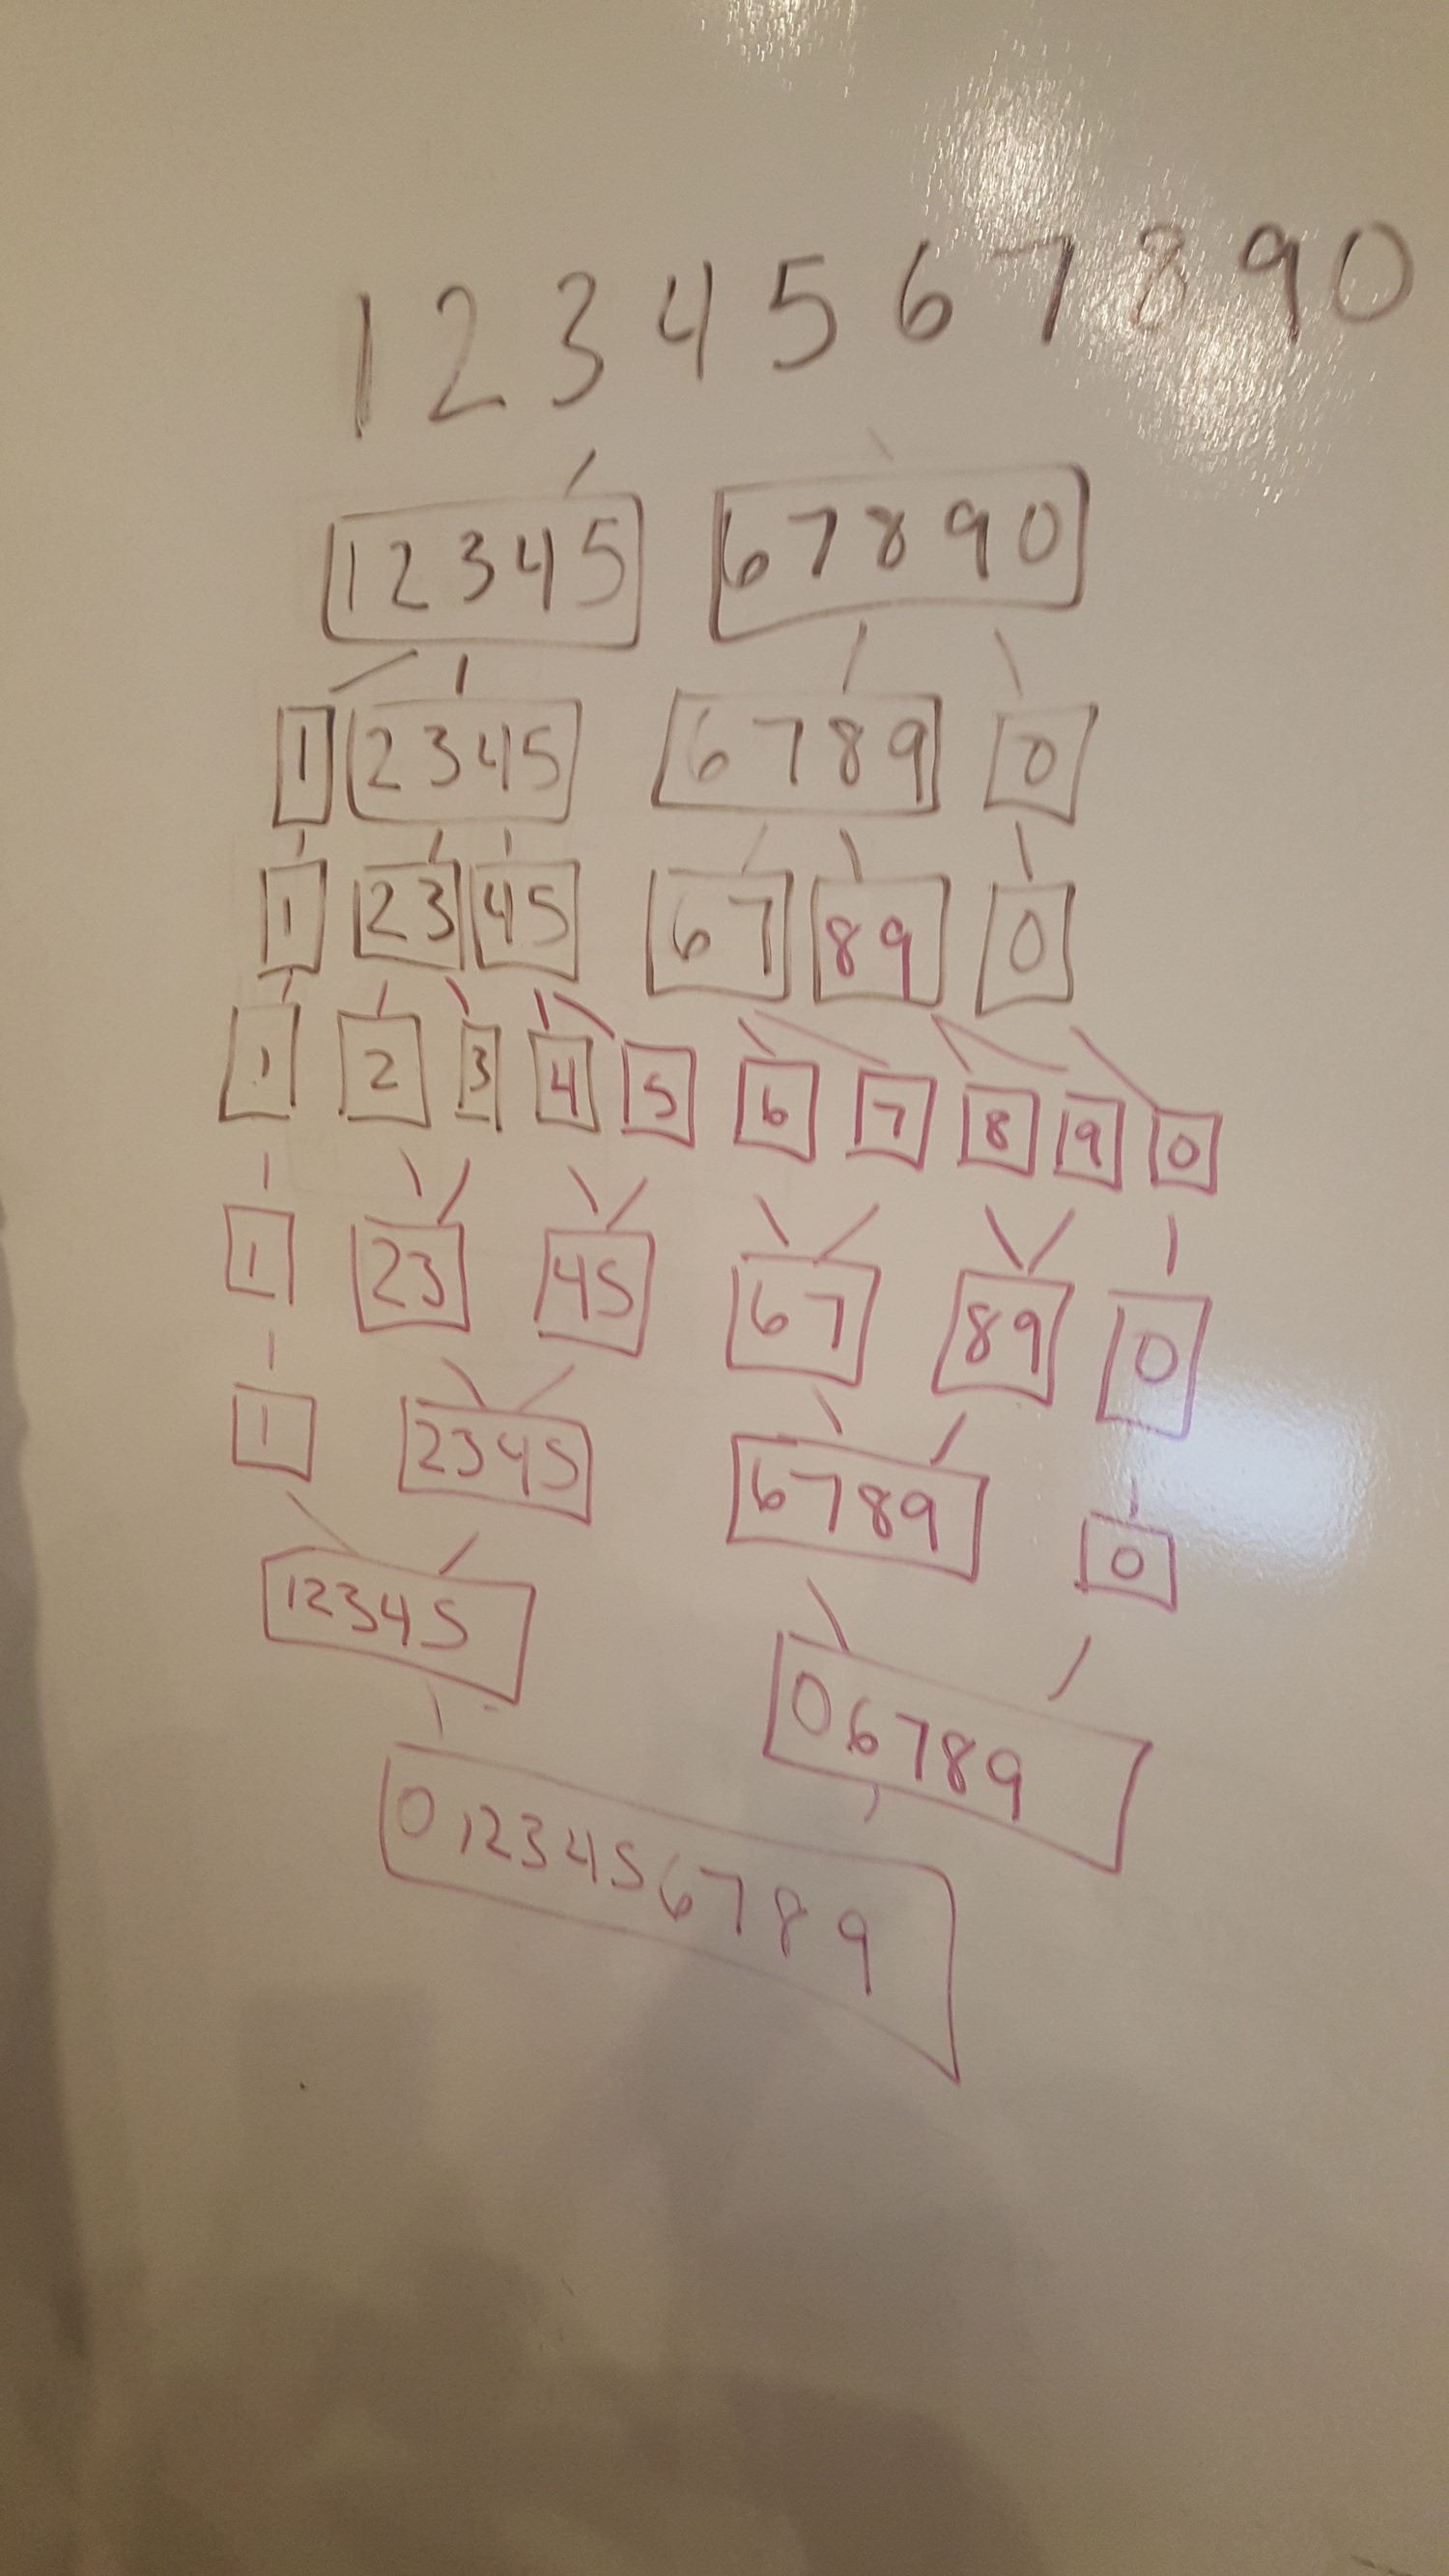 1 2 3 4 5 6 7 8 9 0
12345 67890
1 2345 6789 0
1 23 45 67 89 0
1 2 3 4 5 6 7 8 9 0
1 23 45 67 89 0
1 2345 6789 0
12345 06789
0123456789